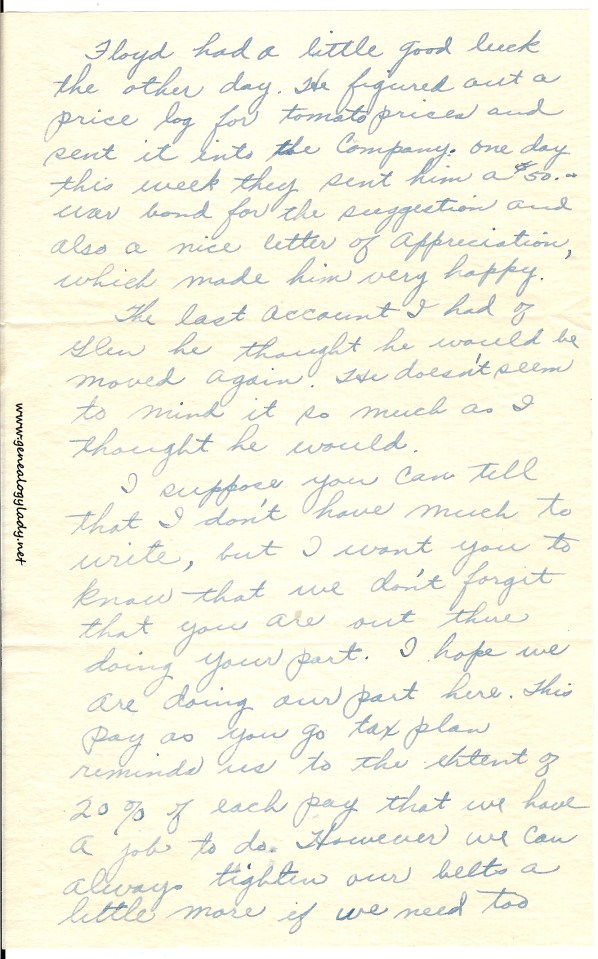 Floyd had a little good luck
the other day. He figured out a
price log for tomato prices and
sent it into the Company. One day
this week they sent him a $50.-
war bond for the suggestion and
also a nice letter of Appreciation,
which made him very happy.
The last account I had of
Glen he thought he would be
moved again. He doesn't seem
to mind it so much as I
thought he would.
I suppose you can tell
that I don't have much to
write, but I want you to
know that we don't forgit
that you are out there
doing your part. I hope we
are doing our part here. This
pay as you go tax plan
reminds us to the extent of
20% of each pay that we have
a job to do. However we can
always tighten our belts a
little more if we need too
www.genealogylady.net